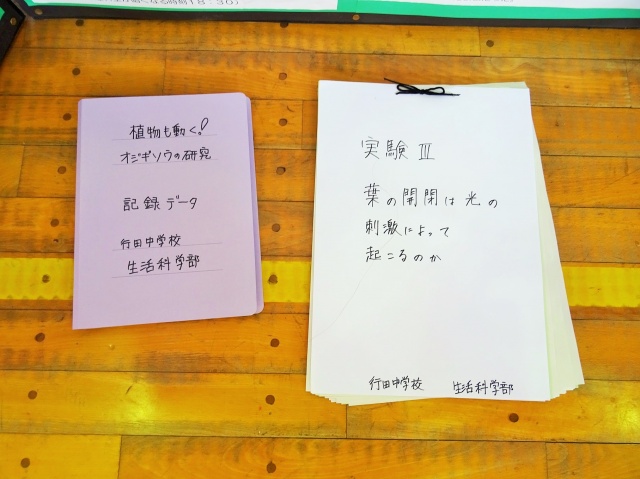 なる時刻18:30)
植物も動く!
オジギソウの研究
記録データ
行田中学校
生活科学部
実験 Ⅲ
葉の開閉は光の
刺激によって
起こるのか
行田中学校 生活科学部